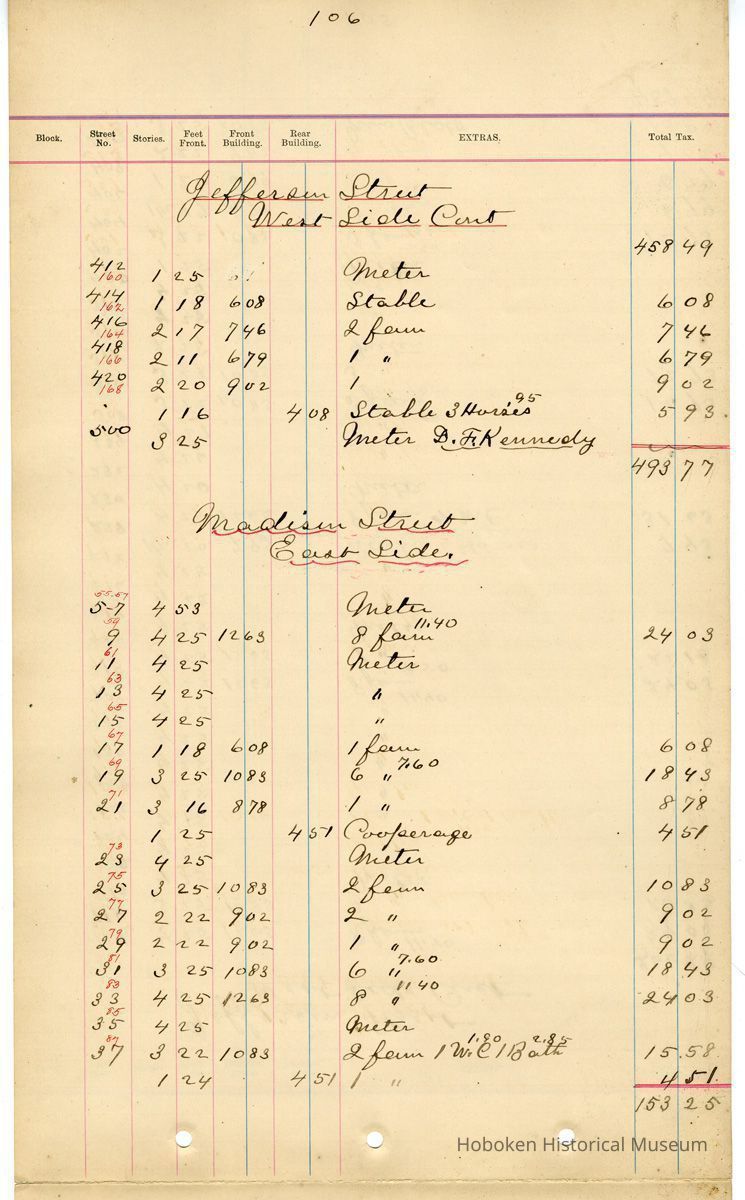 106
Block. Street No. Stories. Feet Front. Front Building. Rear Building. EXTRAS. Total Tax.
Jefferson Street
West Side Cont
458 49
412 160 1 25 Meter
414 162 1 18 6 08 Stable 6 08
416 164 2 17 7 46 2 fam 7 46
418 166 2 11 6 79 1 " 6 79
420 168 2 20 9 02 1 9 02
1 16 4 08 Stable 3 Horses 95 5 93
500 3 25 Meter D. F. Kennedy
493 77
Madison Street
East Side.
55-57 5-7 4 53 Meter
59 9 4 25 12 63 8 fam 11.40 24 03
61 11 4 25 Meter
63 13 4 25 "
65 15 4 25 "
67 17 1 18 6 08 1 fam 6 08
69 19 3 25 10 83 6 " 7.60 18 43
71 21 3 16 8 78 1 " 8 78
1 25 4 51 Cooperage 4 51
73 23 4 25 Meter
75 25 3 25 10 83 2 fam 10 83
77 27 2 22 9 02 2 " 9 02
79 29 2 22 9 02 1 " 9 02
81 31 3 25 10 83 6 " 7.60 18 43
83 33 4 25 12 63 8 " 11 40 24 03
85 35 4 25 Meter
87 37 3 22 10 83 2 fam 1 W.C 1.90 1 Bath 2.85 15.58
1 24 4 51 1 " 4 51
153 25
Hoboken Historical Museum